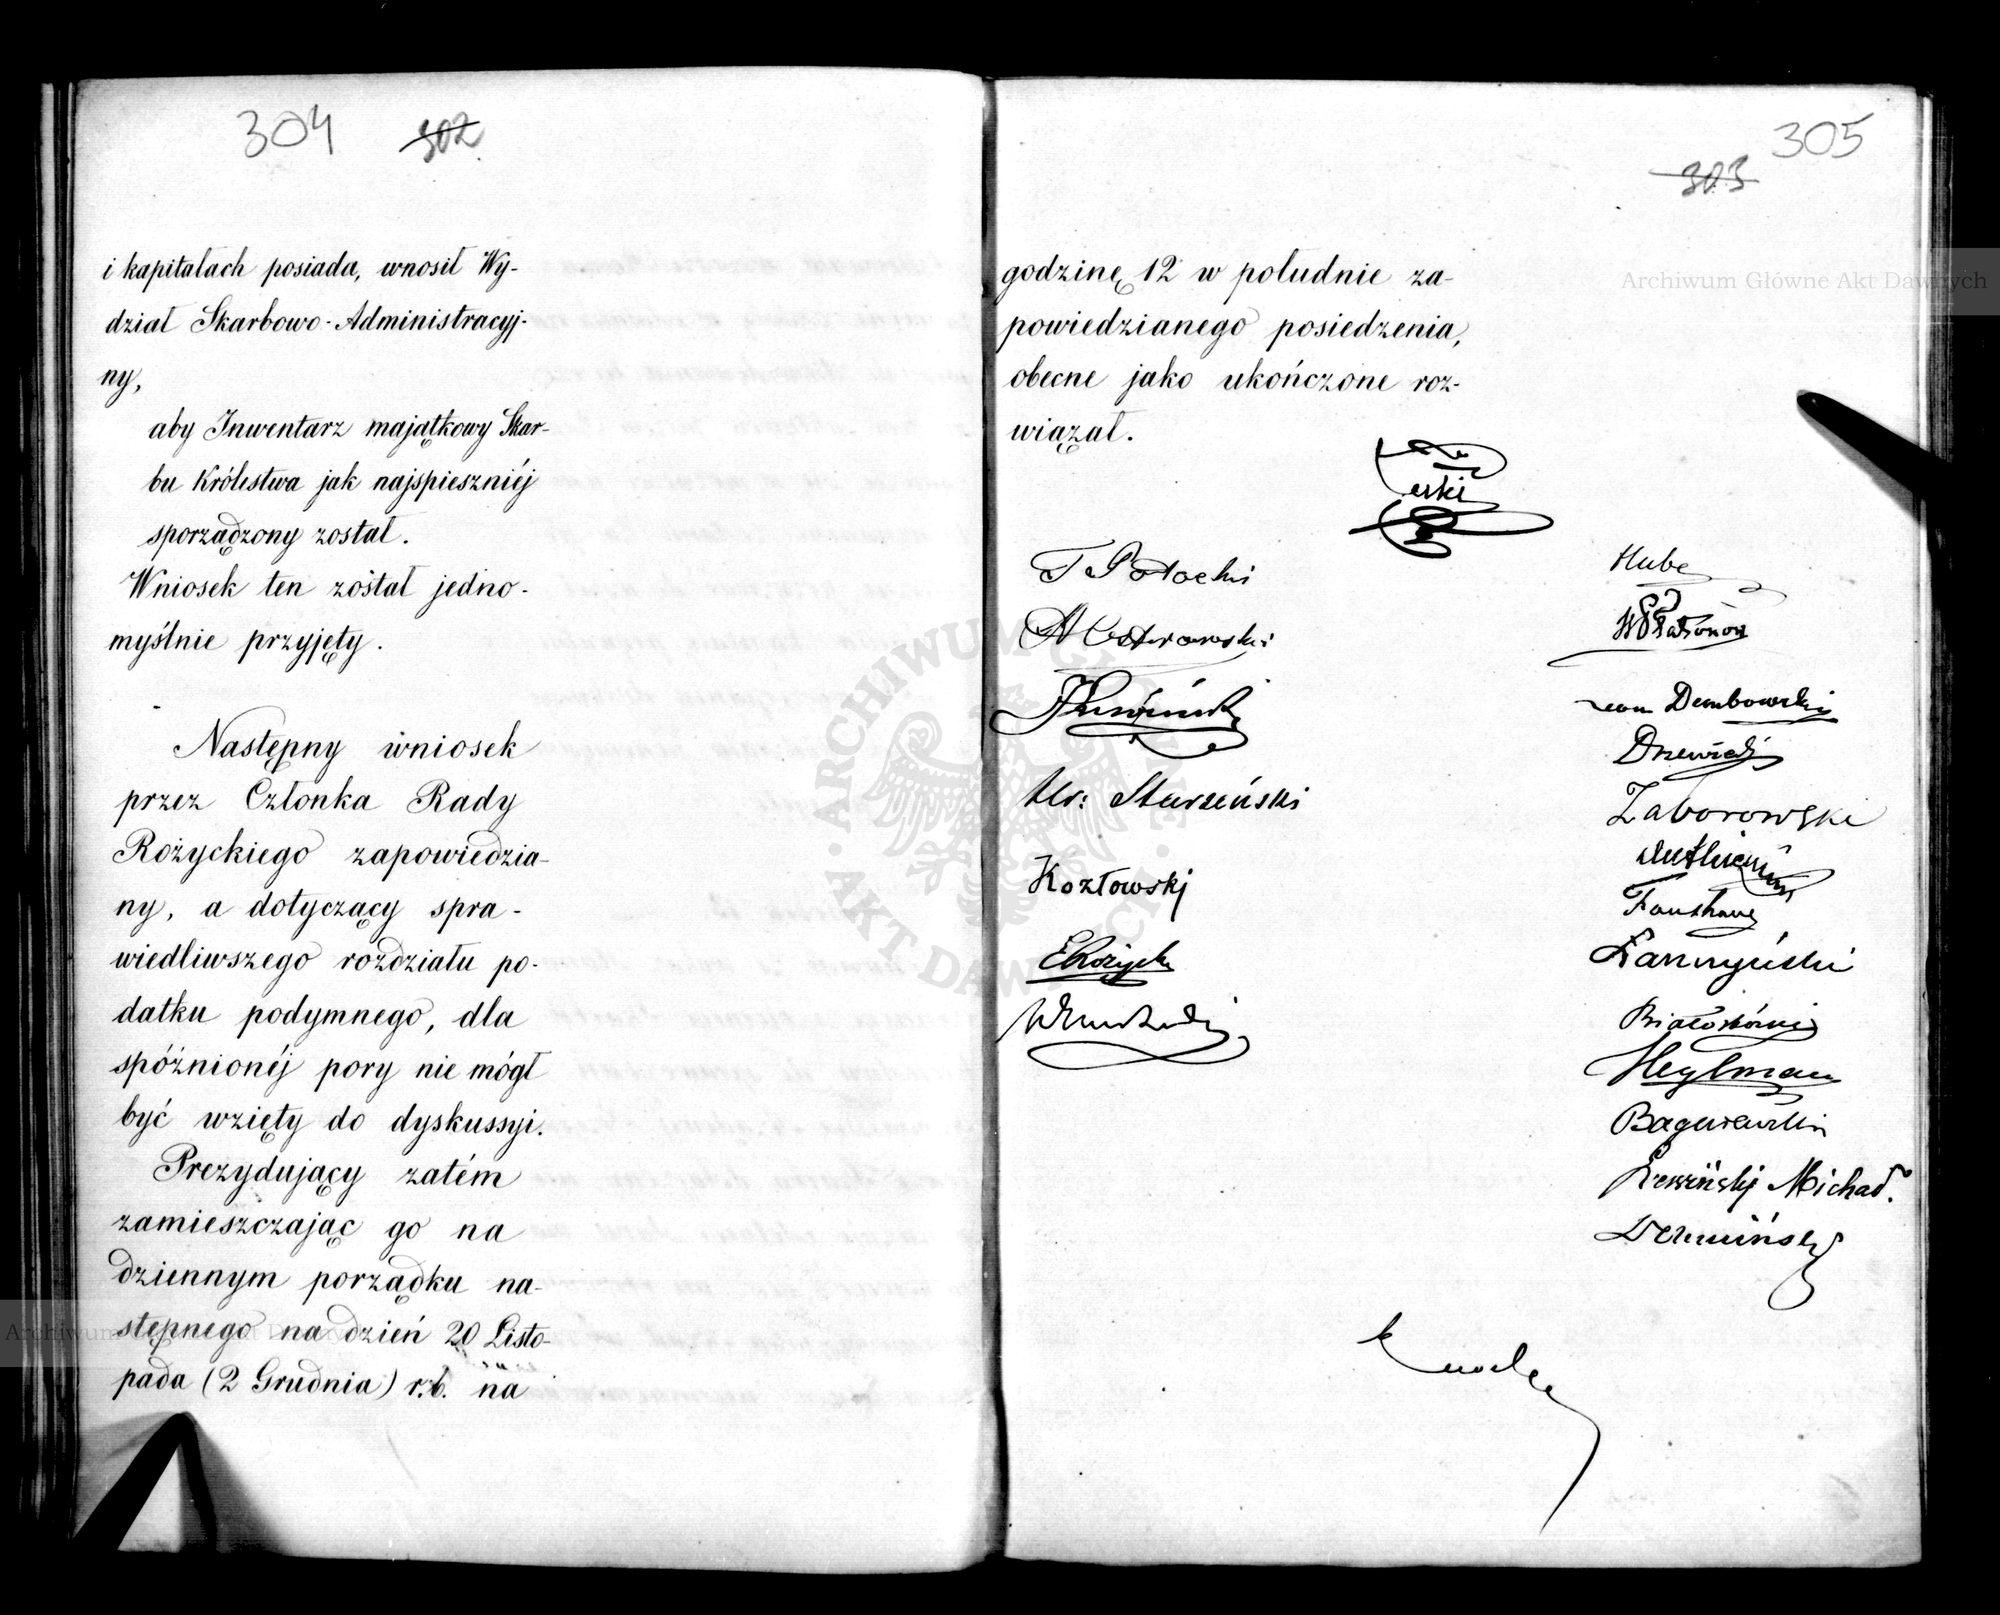 304 302
i kapitałach posiada, wnosił Wy-
dział Skarbowo-Administracyj-
ny,
aby Inwentarz majątkowy Skar-
bu Królestwa jak najspieszniéj
sporządzony został.
Wniosek ten został jedno-
myślnie przyjęty.
Następny wniosek
przez Członka Rady
Rożyckiego zapowiedzia-
ny, a dotyczący spra-
wiedliwszego rozdziału po-
datku podymnego, dla
spóźnionéj pory nie mógł
być wzięty do dyskussyi.
Prezydujący zatém
zamieszczając go na
dziennym porządku na-
stępnego na dzień 20 Listo-
pada (2 Grudnia) r.b. na
305
303
Archiwum Główne Akt Dawnych
godzinę 12 w południe za-
powiedzianego posiedzenia,
obecne jako ukończone roz-
wiązał.
T Potocki
A Ostrowski
Starzeński
Kozłowskj
Hube
Dembowski
Zaborowski
Białoskórski
Heylman
Michał.
ARCHIWUM GŁÓWNE AKT DAWNYCH